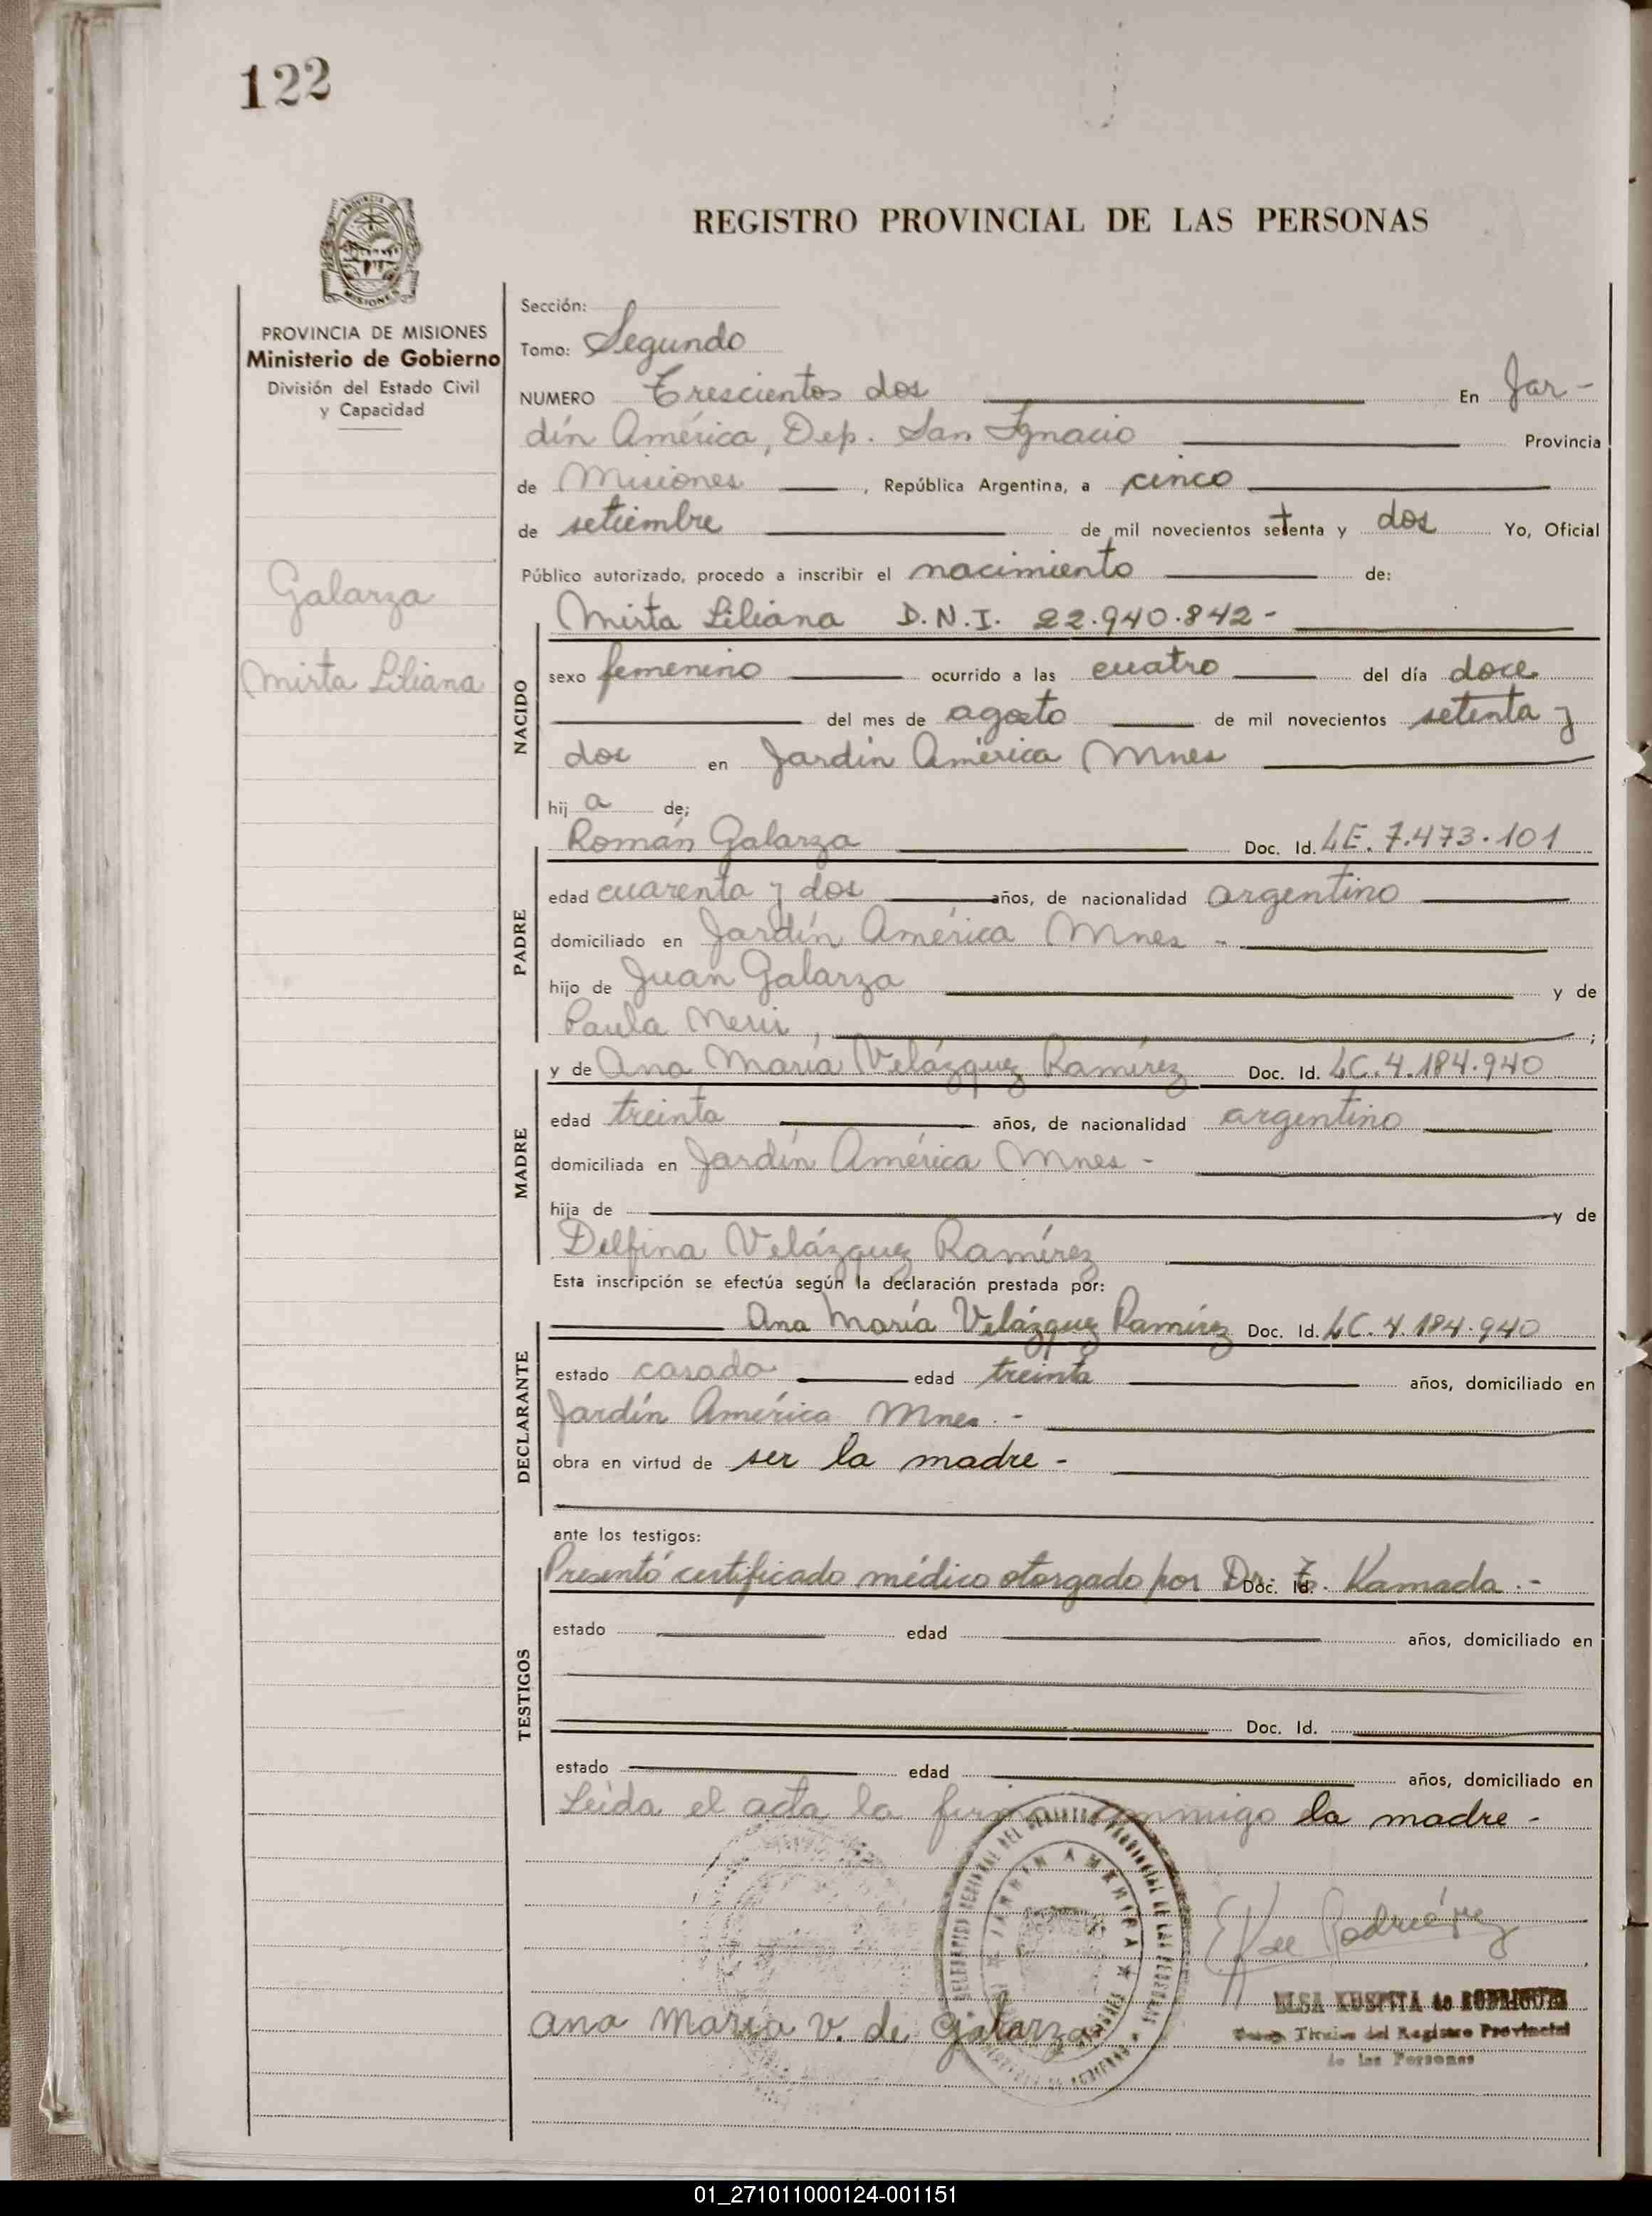 122
REGISTRO PROVINCIAL DE LAS PERSONAS
MISIONES
PROVINCIA DE MISIONES
Ministerio de Gobierno
División del Estado Civil
y Capacidad
Galarza
Mirta Liliana
Sección:
Tomo: Segundo
NUMERO Trescientos dos En Jar-
dín América, Dep. San Ignacio Provincia
de Misiones , República Argentina, a cinco
de setiembre de mil novecientos setenta y dos Yo, Oficial
Público autorizado, procedo a inscribir el nacimiento de:
Mirta Liliana D.N.I. 22.940.842-
NACIDO
sexo femenino ocurrido a las cuatro del día doce
del mes de agosto de mil novecientos setenta y
dos en Jardín América Mnes
hij a de;
Román Galarza Doc. Id. LE. 7.473.101
PADRE
edad cuarenta y dos años, de nacionalidad argentino
domiciliado en Jardín América Mnes -
hijo de Juan Galarza y de
Paula ;
y de Ana María Velázquez Ramírez Doc. Id. LC.4.184.940
MADRE
edad treinta años, de nacionalidad argentino
domiciliada en Jardín América Mnes -
hija de y de
Delfina Velázquez Ramírez
Esta inscripción se efectúa según la declaración prestada por:
Ana María Velázquez Ramírez Doc. Id. LC. 4.184.940
DECLARANTE
estado casada edad treinta años, domiciliado en
Jardín América Mnes. -
obra en virtud de ser la madre -
ante los testigos:
Presentó certificado médico otorgado por Dr. Doc. Id. Kamada.-
TESTIGOS
estado edad años, domiciliado en
Doc. Id.
estado edad años, domiciliado en
Leída el acta la firma conmigo la madre -
JARDIN AMERICA
de Rodríguez
Ana María V. de Galarza
ELSA de RODRIGUEZ
Titular del Registro Provincial
de las Personas
01_271011000124-001151